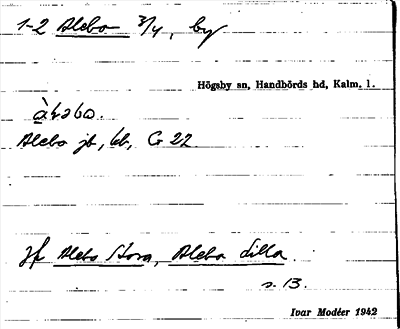 1-2 Alebo 3/4, by
Högsby sn, Handbörds hd, Kalm. l.
Alebo jb, kb, G 22
Jf Alebo Stora, Alebo Lilla.
s. 13.
Ivar Modéer 1942